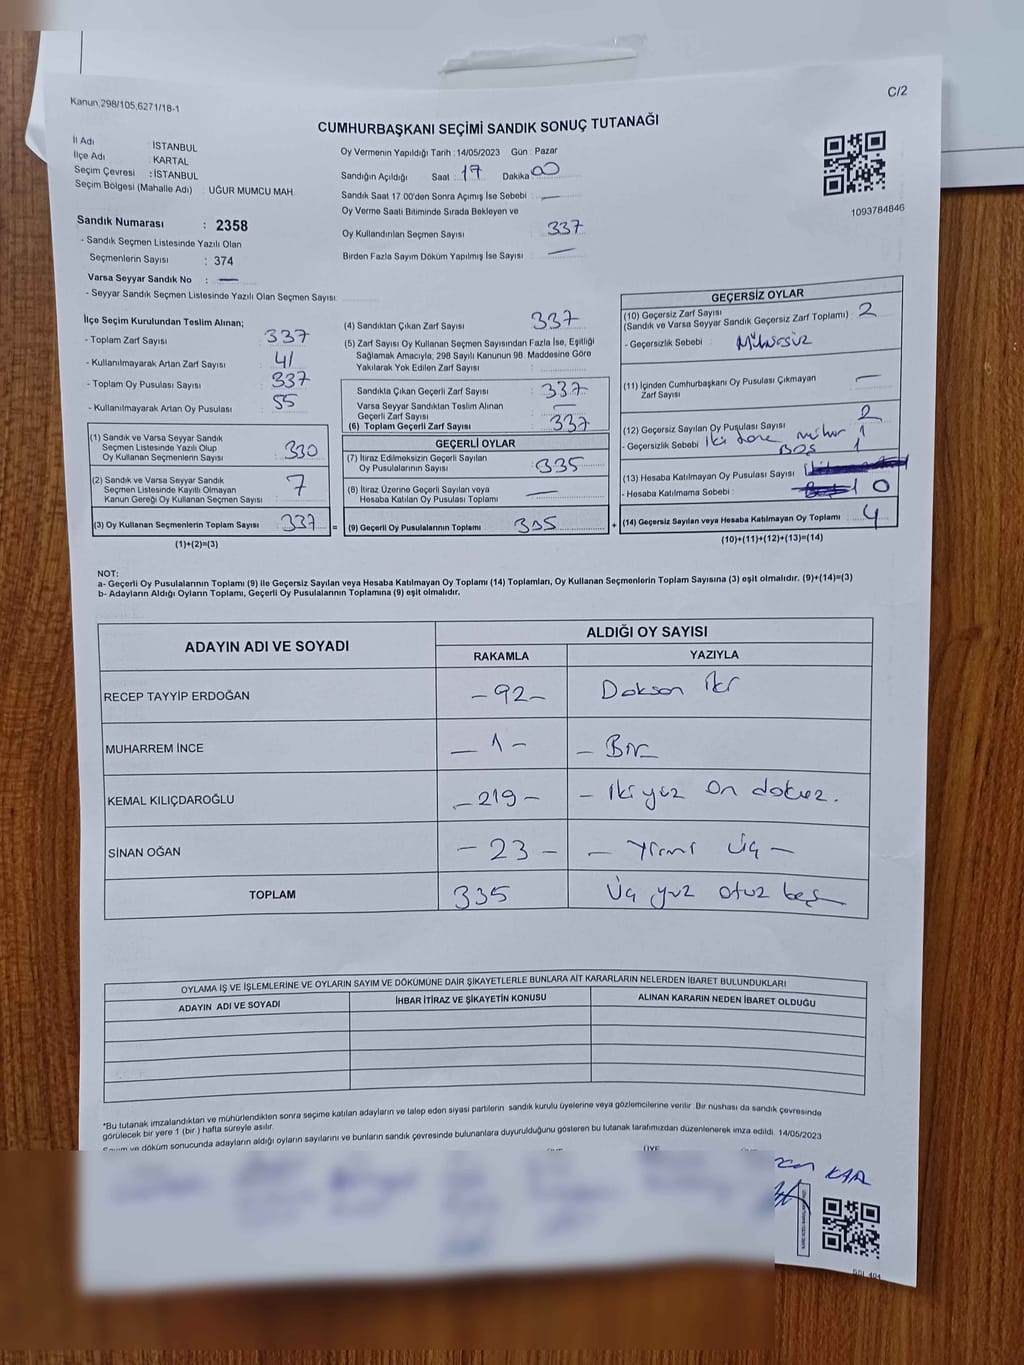 Kanun,298/105,6271/18-1
C/2
CUMHURBAŞKANI SEÇİMİ SANDIK SONUÇ TUTANAĞI
İl Adı : İSTANBUL
İlçe Adı : KARTAL
Seçim Çevresi : İSTANBUL
Seçim Bölgesi (Mahalle Adı) : UĞUR MUMCU MAH.
Sandık Numarası : 2358
- Sandık Seçmen Listesinde Yazılı Olan
Seçmenlerin Sayısı : 374
Varsa Seyyar Sandık No : —
- Seyyar Sandık Seçmen Listesinde Yazılı Olan Seçmen Sayısı:
Oy Vermenin Yapıldığı Tarih : 14/05/2023 Gün : Pazar
Sandığın Açıldığı Saat : 17 Dakika 00
Sandık Saat 17.00'den Sonra Açımış İse Sebebi : —
Oy Verme Saati Bitiminde Sırada Bekleyen ve
Oy Kullandırılan Seçmen Sayısı 337
Birden Fazla Sayım Döküm Yapılmış İse Sayısı —
1093784846
İlçe Seçim Kurulundan Teslim Alınan;
- Toplam Zarf Sayısı : 337
- Kullanılmayarak Artan Zarf Sayısı : 41
- Toplam Oy Pusulası Sayısı : 337
- Kullanılmayarak Artan Oy Pusulası : 55
(1) Sandık ve Varsa Seyyar Sandık
Seçmen Listesinde Yazılı Olup
Oy Kullanan Seçmenlerin Sayısı : 330
(2) Sandık ve Varsa Seyyar Sandık
Seçmen Listesinde Kayıtlı Olmayan
Kanun Gereği Oy Kullanan Seçmen Sayısı : 7
(3) Oy Kullanan Seçmenlerin Toplam Sayısı : 337
(1)+(2)=(3)
(4) Sandıktan Çıkan Zarf Sayısı : 337
(5) Zarf Sayısı Oy Kullanan Seçmen Sayısından Fazla İse, Eşitliği
Sağlamak Amacıyla, 298 Sayılı Kanunun 98. Maddesine Göre
Yakılarak Yok Edilen Zarf Sayısı :
Sandıkla Çıkan Geçerli Zarf Sayısı : 337
Varsa Seyyar Sandıktan Teslim Alınan
Geçerli Zarf Sayısı : —
(6) Toplam Geçerli Zarf Sayısı : 337
GEÇERLİ OYLAR
(7) İtiraz Edilmeksizin Geçerli Sayılan
Oy Pusulalarının Sayısı : 335
(8) İtiraz Üzerine Geçerli Sayılan veya
Hesaba Katılan Oy Pusulası Toplamı : —
= (9) Geçerli Oy Pusulalarının Toplamı 335 +
GEÇERSİZ OYLAR
(10) Geçersiz Zarf Sayısı
(Sandık ve Varsa Seyyar Sandık Geçersiz Zarf Toplamı) : 2
- Geçersizlik Sebebi : Mühürsüz
(11) İçinden Cumhurbaşkanı Oy Pusulası Çıkmayan
Zarf Sayısı : —
(12) Geçersiz Sayılan Oy Pusulası Sayısı 2
- Geçersizlik Sebebi iki tane mühür 1
BOŞ 1
(13) Hesaba Katılmayan Oy Pusulası Sayısı
- Hesaba Katılmama Sebebi : 0
(14) Geçersiz Sayılan veya Hesaba Katılmayan Oy Toplamı : 4
(10)+(11)+(12)+(13)=(14)
NOT:
a- Geçerli Oy Pusulalarının Toplamı (9) ile Geçersiz Sayılan veya Hesaba Katılmayan Oy Toplamı (14) Toplamları, Oy Kullanan Seçmenlerin Toplam Sayısına (3) eşit olmalıdır. (9)+(14)=(3)
b- Adayların Aldığı Oyların Toplamı, Geçerli Oy Pusulalarının Toplamına (9) eşit olmalıdır.
ADAYIN ADI VE SOYADI ALDIĞI OY SAYISI
RAKAMLA YAZIYLA
RECEP TAYYİP ERDOĞAN – 92 – Doksan iki
MUHARREM İNCE – 1 – – Bir
KEMAL KILIÇDAROĞLU – 219 – – iki yüz on dokuz.
SİNAN OĞAN – 23 – – Yirmi üç –
TOPLAM 335 üç yüz otuz beş
OYLAMA İŞ VE İŞLEMLERİNE VE OYLARIN SAYIM VE DÖKÜMÜNE DAİR ŞİKAYETLERLE BUNLARA AİT KARARLARIN NELERDEN İBARET BULUNDUKLARI
ADAYIN ADI VE SOYADI İHBAR İTİRAZ VE ŞİKAYETİN KONUSU ALINAN KARARIN NEDEN İBARET OLDUĞU
*Bu tutanak imzalandıktan ve mühürlendikten sonra seçime katılan adayların ve talep eden siyasi partilerin sandık kurulu üyelerine veya gözlemcilerine verilir. Bir nüshası da sandık çevresinde
görülecek bir yere 1 (bir) hafta süreyle asılır.
Sayım ve döküm sonucunda adayların aldığı oyların sayılarını ve bunların sandık çevresinde bulunanlara duyurulduğunu gösteren bu tutanak tarafımızdan düzenlenerek imza edildi. 14/05/2023
ÜYE